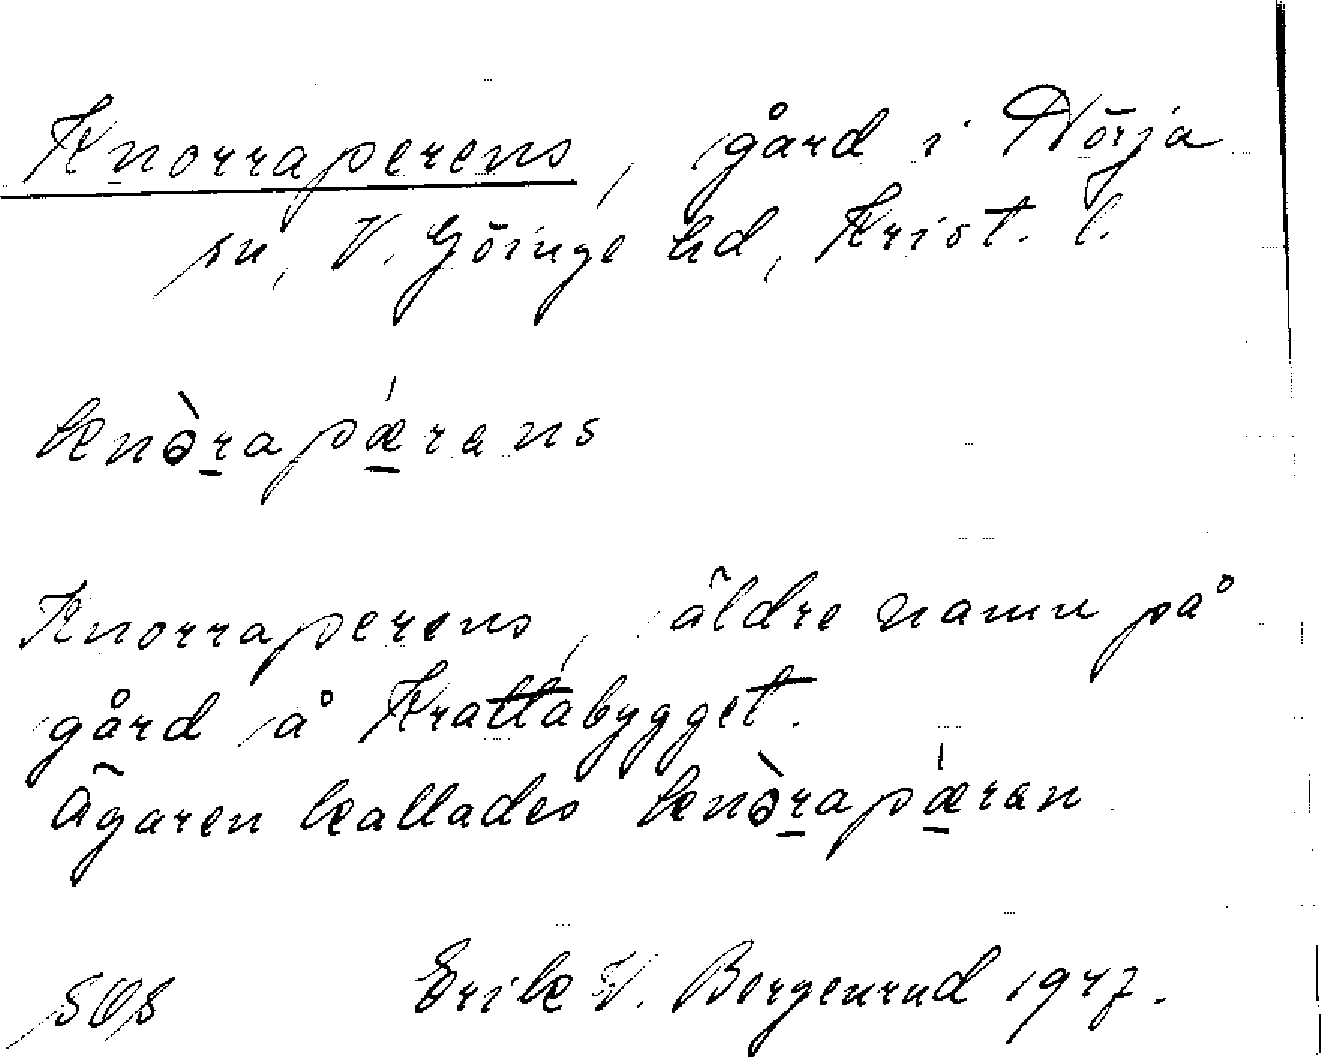 Knorraperens, gård i Nörja
sn, V. Göinge hd, Krist. l.
knə̀rapǽrans
Knorraperens, äldre namn på
gård å Krattabygget.
Ägaren kallades knə̀rapǽran
SOS Erik V. Bergenrud 1947.